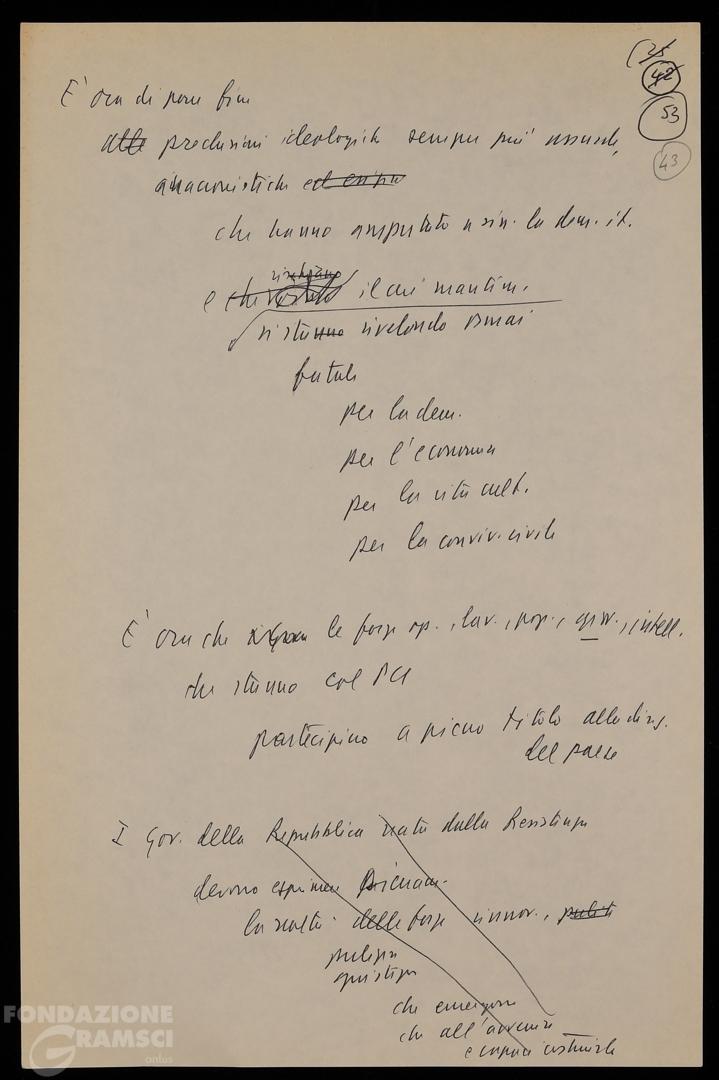 25
42
53
43
È ora di porre fine
alle preclusioni ideologiche sempre più assurde,
anacronistiche
che hanno amputato a sin. la dem. it.
e che il cui mantim.
si stanno rivelando ormai
fatale
per la dem.
per l'economia
per la vita cult.
per la conviv. civile
È ora che le forze op., lav., pop., giov., intell.
che stanno col PCI
partecipino a pieno titolo alla direz.
del paese
I gov. della Repubblica nata dalla Resistenza
devono esprimere pienam.
la realtà delle forze innov., pulite
pulizia
giustizia
che emergono
che all'avvenire
e capaci costruirlo
FONDAZIONE
GRAMSCI
onlus